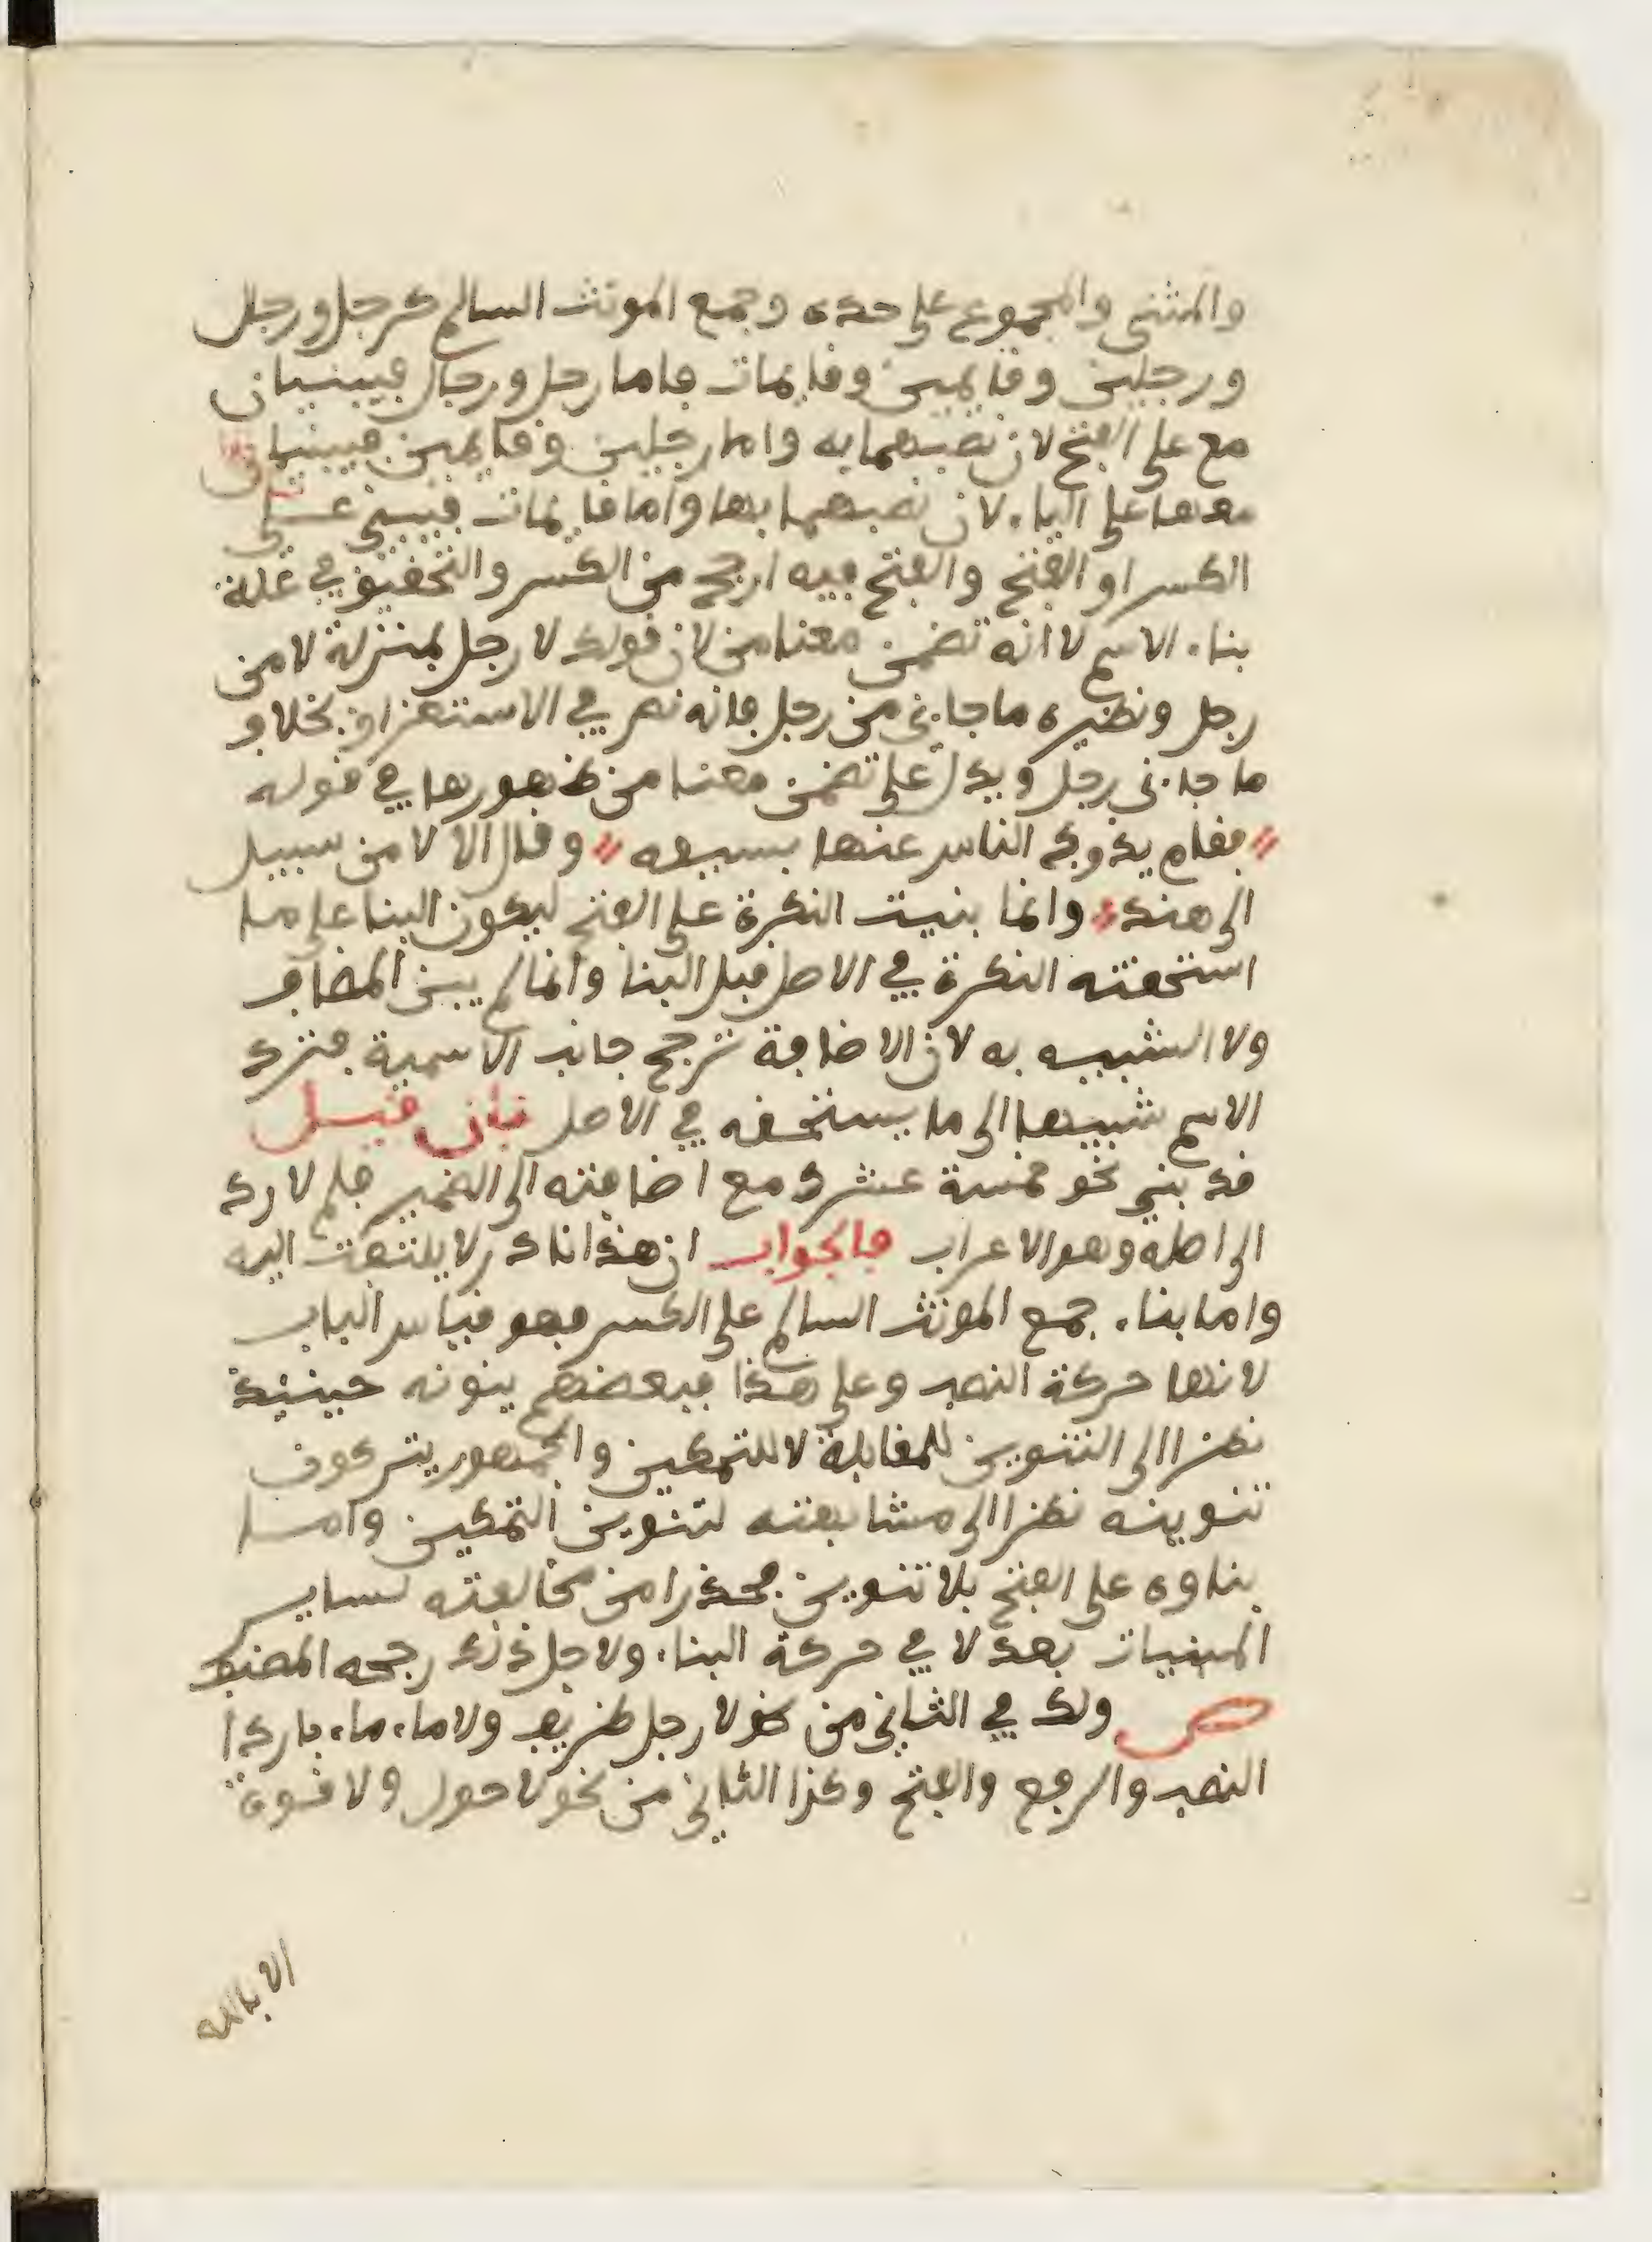 والمثنى والمجموع على حده وجمع المونث السالم كرجل ورجال
ورجلين وقايمين وقايمات فاما رجل ورجال فيبنيان
مع على الفتح لان نصبهما به واما رجلين وقايمين فيبنيان
معها على الياء لان نصبهما بها واما قايمات فيبنى على
الكسر او الفتح والفتح فيه ارجح من الكسر والتحقيق في علة
بناء الاسم لا انه تضمن معنا من لان قولك لا رجل بمنزلة لا من
رجل ونظيره ما جاءني من رجل فانه نص في الاستغراق بخلاف
ما جاءني رجل ويدل على تضمن معنا من ظهورها في قوله
فقام يذود الناس عنها بسيفه وقال الا لا من سبيل
الى هند وانما بنيت النكرة على الفتح ليكون البنا على ما
استحقته النكرة في الاصل قبل البنا وانما لم يبن المضاف
ولا الشبيه به لان الاضافة ترجح جانب الاسمية فترد
الاسم شبيها الى ما يستحقه في الاصل فان قيل
قد بني نحو خمسة عشرك مع اضافته الى الضمير فلم لا رد
الى اصله وهو الاعراب فالجواب ان هذا نادر لا يلتفت اليه
واما بناء جمع المونث السالم على الكسر فهو قياس الباب
لانها حركة النصب وعلى هذا فبعضهم ينونه حينيذ
نظرا الى التنوين للمقابلة لا للتمكين والجمهور يتركون
تنوينه نظرا الى مشابهته لتنوين التمكين واما
بناوه على الفتح بلا تنوين فحذرا من مخالفته لساير
المبنيات بعد لا في حركة البناء ولاجل ذلك رجحه المصنف
ص ولك في الثاني من نحو لا رجل ظريف ولا ماء ماء باردا
النصب والرفع والفتح وكذا الثاني من نحو لا حول ولا قوة
الا بالله